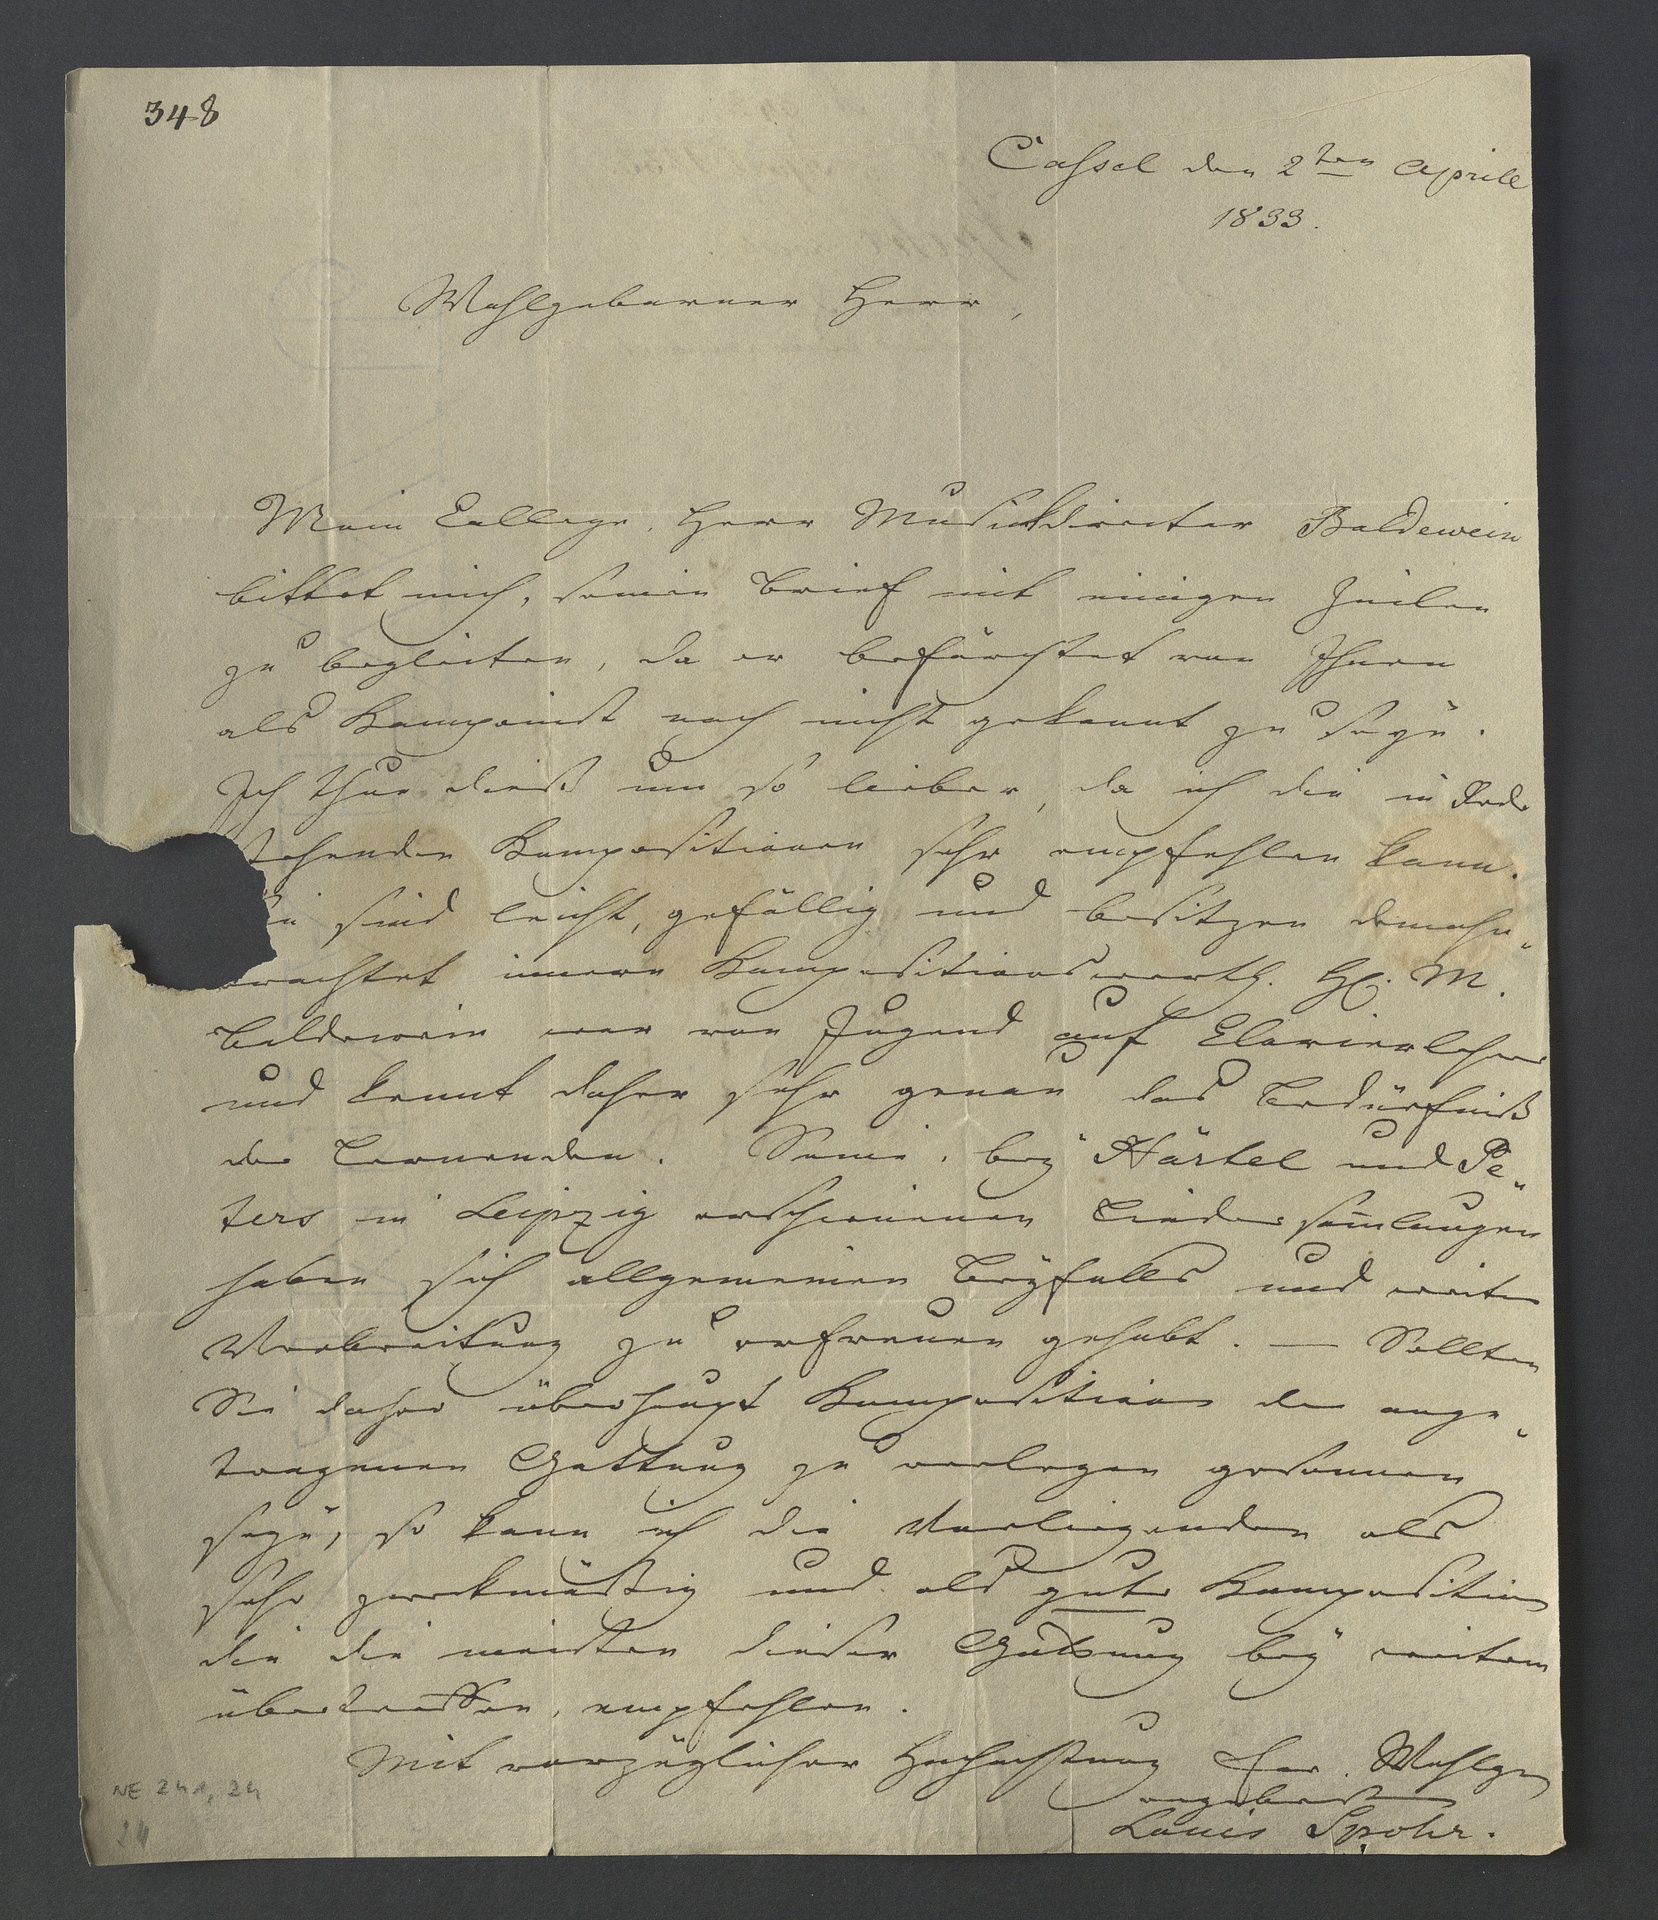 348
Cassel den 2ten Aprill
1833.
Wohlgeborner Herr,
Mein College, Herr Musikdirector Baldewein
bittet mich, seinen Brief mit einigen Zeilen
zu begleiten, da er befürchtet von Ihnen
als Komponist noch nicht gekannt zu seyn.
Ich thue dieß um so lieber, da ich die in Rede
stehenden Kompositionen sehr empfehlen kann.
Sie sind leicht, gefällig und besitzen demohn„
erachtet innern Kompositionswerth. H. M.
Baldewein war von Jugend auf Clavierlehrer
und kennt daher sehr genau das Bedürfniß
der Lernenden. Seine, bey Härtel und Pe„
ters in Leipzig erschienenen Liedersamlungen
haben sich allgemeinen Beyfalls und weiter
Verbreitung zu erfreuen gehabt. — Sollten
Sie daher überhaupt Kompositionen der ange„
tragenen Gattung zu verlegen gesonnen
seyn, so kann ich die Vorliegenden als
sehr zweckmäßig und als gute Komposition
die die meisten dieser Gattung bey weitem
übertreffen, empfehlen.
Mit vorzüglicher Hochachtung Ew. Wohlgeb
ergebenster
Louis Spohr.
NE 241, 24
24